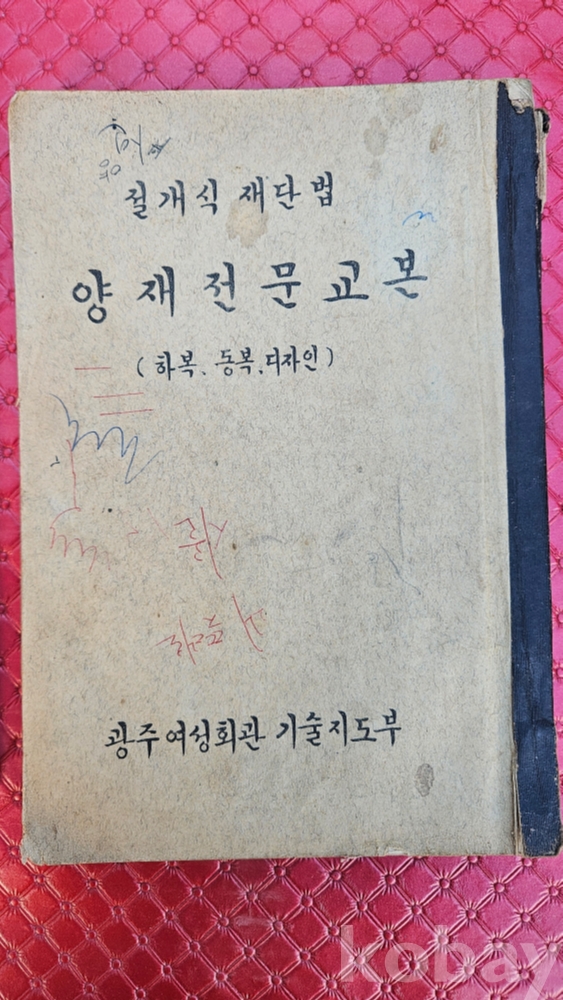 절개식 재단법
양재전문교본
(하복、동복、디자인)
광주여성회관 기술지도부
kobay